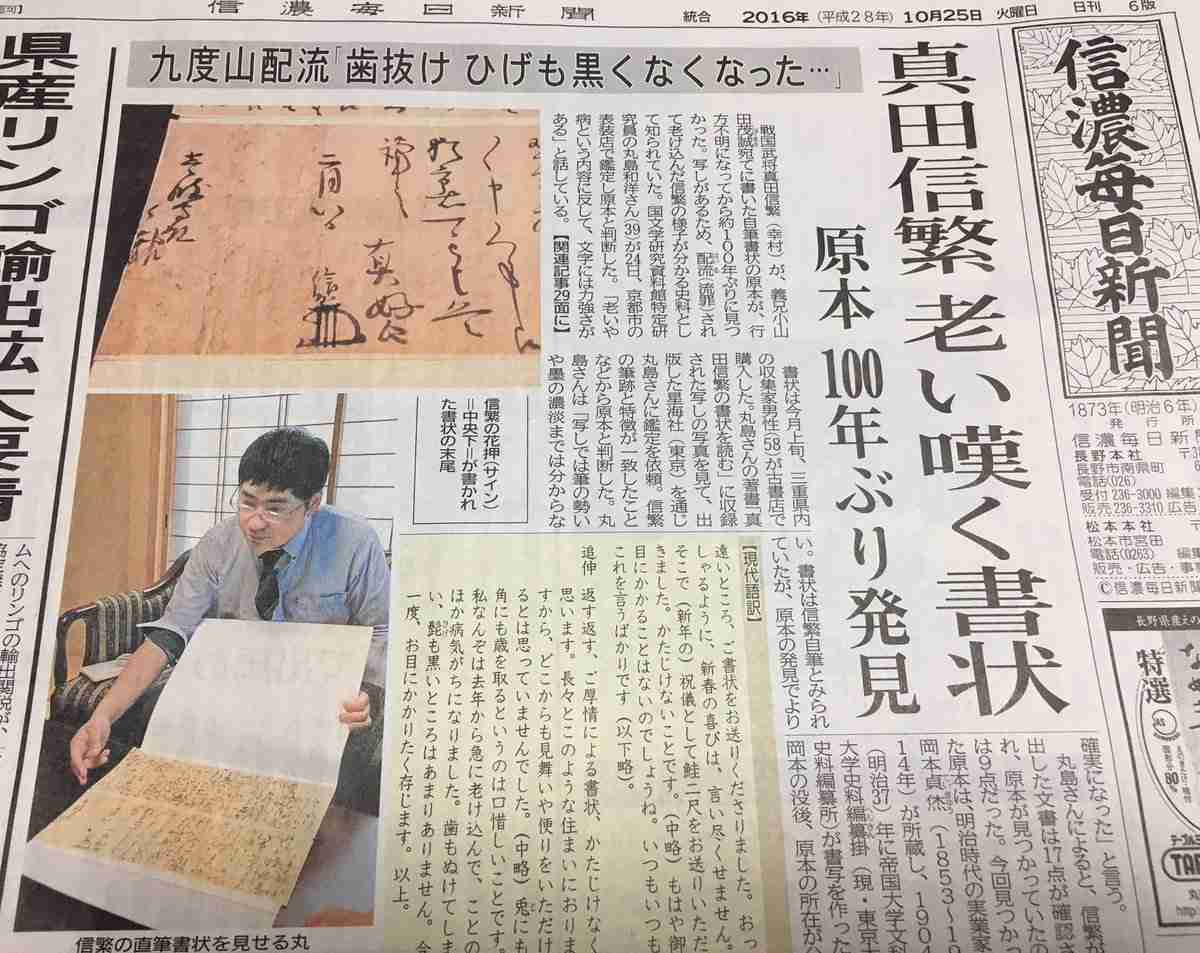 信濃毎日新聞
統合
2016年(平成28年)10月25日 火曜日
日刊
6版
信濃毎日新聞
1873年(明治6年)
発行所
信濃毎日新聞
長野本社
長野市南県町
電話(026)
受付236-3000 編集
販売236-3310 広告
松本本社
松本市宮田
電話(0263) 編集
販売・広告・事業
©信濃毎日新聞
真田信繁 老い嘆く書状
原本 100年ぶり発見
九度山配流「歯抜け ひげも黒くなくなった…」
戦国武将真田信繁(幸村)が、義兄小山
田茂誠宛てに書いた自筆書状の原本が、行
方不明になってから約100年ぶりに見つ
かった。写しがあるため、配流(流罪)され
て老け込んだ信繁の様子が分かる史料とし
て知られていた。国文学研究資料館特定研
究員の丸島和洋さん(39)が24日、京都市の
表装店で鑑定し原本と判断した。「老いや
病という内容に反して、文字には力強さが
ある」と話している。【関連記事29面に】
書状は今月上旬、三重県内
の収集家男性(58)が古書店で
購入した。丸島さんの著書「真
田信繁の書状を読む」に収録
された写しの写真を見て、出
版した星海社(東京)を通じ
丸島さんに鑑定を依頼。信繁
の筆跡と特徴が一致したこと
などから原本と判断した。丸
島さんは「写しでは筆の勢い
や墨の濃淡までは分からな
い。書状は信繁自筆とみられ
ていたが、原本の発見でより
確実になった」と言う。
丸島さんによると、信繁が
出した文書は17点が確認さ
れ、原本が見つかっていたの
は9点だった。今回見つかっ
た原本は、明治時代の実業家
岡本貞烋(1853〜19
14年)が所蔵し、1904
(明治37)年に帝国大学文科
大学史料編纂掛(現・東京大
史料編纂所)が書写を作った
岡本の没後、原本の所在が分
信繁の花押(サイン)
=中央下=が書かれ
た書状の末尾
【現代語訳】
遠いところ、ご書状をお送りくださりました。おっ
しゃるように、新春の喜びは、言い尽くせません。
そこで(新年の)祝儀として鮭二尺をお送りいただ
きました。かたじけないことです。(中略)もはや御
目にかかることはないのでしょうね。いつもいつも
これを言うばかりです(以下略)。
追伸 返す返す、ご厚情による書状、かたじけなく
思います。長々とこのような住まいにおりま
すから、どこからも見舞いや便りをいただけ
るとは思っていませんでした。(中略)兎にも
角にも歳を取るというのは口惜しいことです。
私なんぞは去年から急に老け込んで、ことの
ほか病気がちになりました。歯もぬけてしま
い、髭も黒いところはあまりありません。今
一度、お目にかかりたく存じます。 以上。
信繁の直筆書状を見せる丸
県産リンゴ輸出拡大要請
ムへのリンゴの輸出関税が、
長野県産えの
特選
JAS